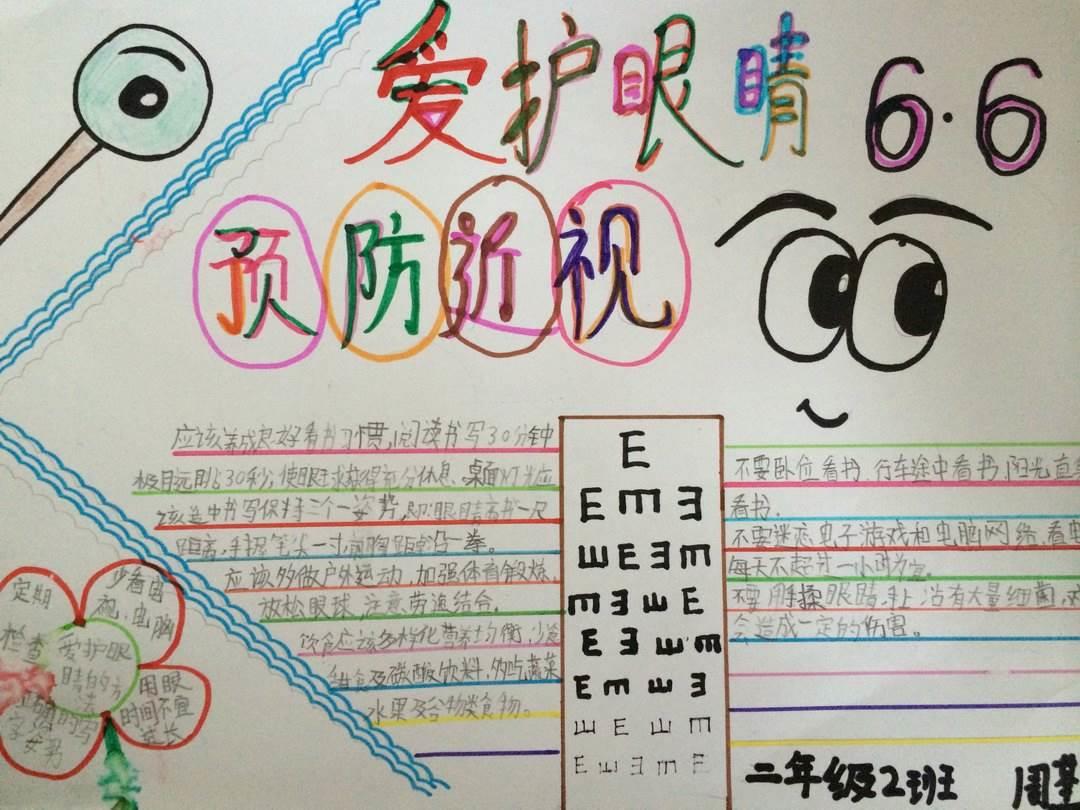 爱护眼睛 6·6
预防近视
应该养成良好看书习惯,阅读书写30分钟
极目远眺630秒,使眼球获得充分休息、桌面灯光应
该适中书写保持三个一姿势,即:眼睛离书一尺
距离,手握笔尖一寸间胸距离一拳。
应该多做户外运动,加强体育锻炼,
放松眼球,注意劳逸结合,
饮食应该多样化营养均衡,少食
甜食及碳酸饮料,多吃蔬菜
水果及谷物类食物。
E
E M Ǝ
Ш E Ǝ M
M Ǝ Ш E
E Ǝ Ш M
E M Ш Ǝ
Ш E Ш M
E Ш Ǝ M E
不要卧位看书,行车途中看书,阳光直
看书.
不要迷恋电子游戏和电脑网络,看电
每天不超过一小时为宜。
不要用手揉眼睛,手上沾有大量细菌,对
会造成一定的伤害。
爱护眼
睛的方
法
定期
检查
少看电
视,电脑
用眼
时间不宜
过长
正确的写
字姿势
二年级2班 周